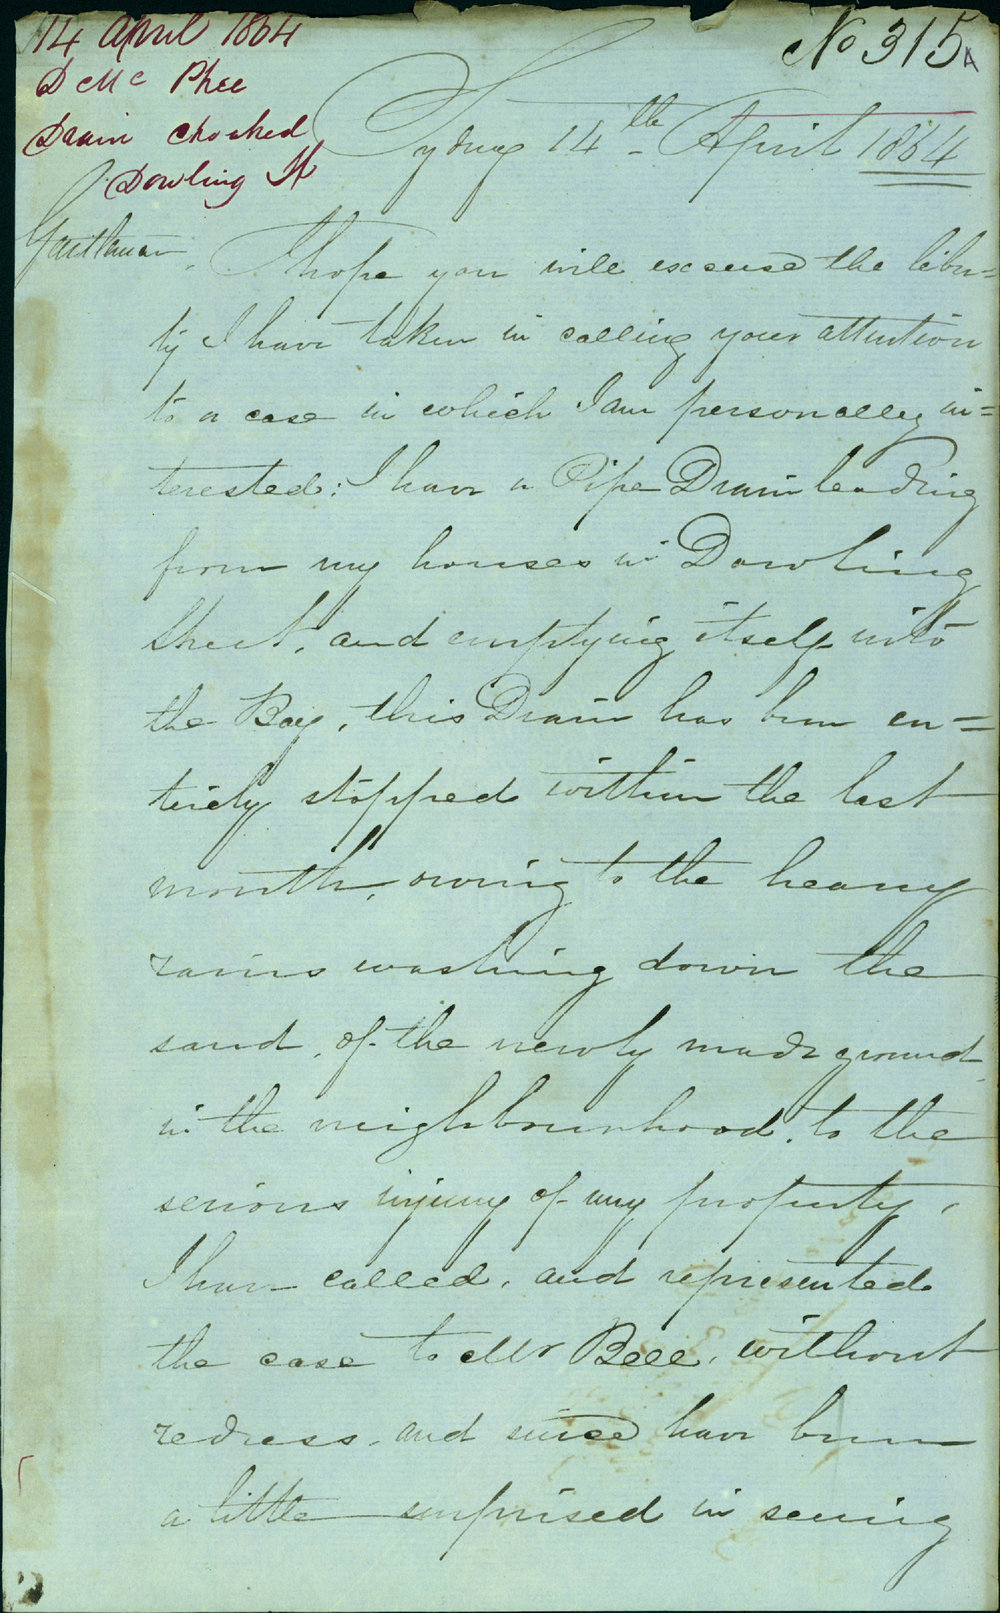 14 April 1864
D McPhee
Drain choked
Dowling St
No 315A
Sydney 14th April 1864
Gentlemen,
I hope you will excuse the liber=
ty I have taken in calling your attention
to a case in which I am personally in=
terested: I have a Pipe Drain leading
from my houses in Dowling
Street, and emptying itself into
the Bay, this Drain has been en=
tirely stopped within the last
month, owing to the heavy
rains washing down the
sand, of the newly made ground,
in the neighbourhood, to the
serious injury of my property,
I have called, and represented
the case to Mr Bell, without
redress, and since have been
a little surprised in seeing